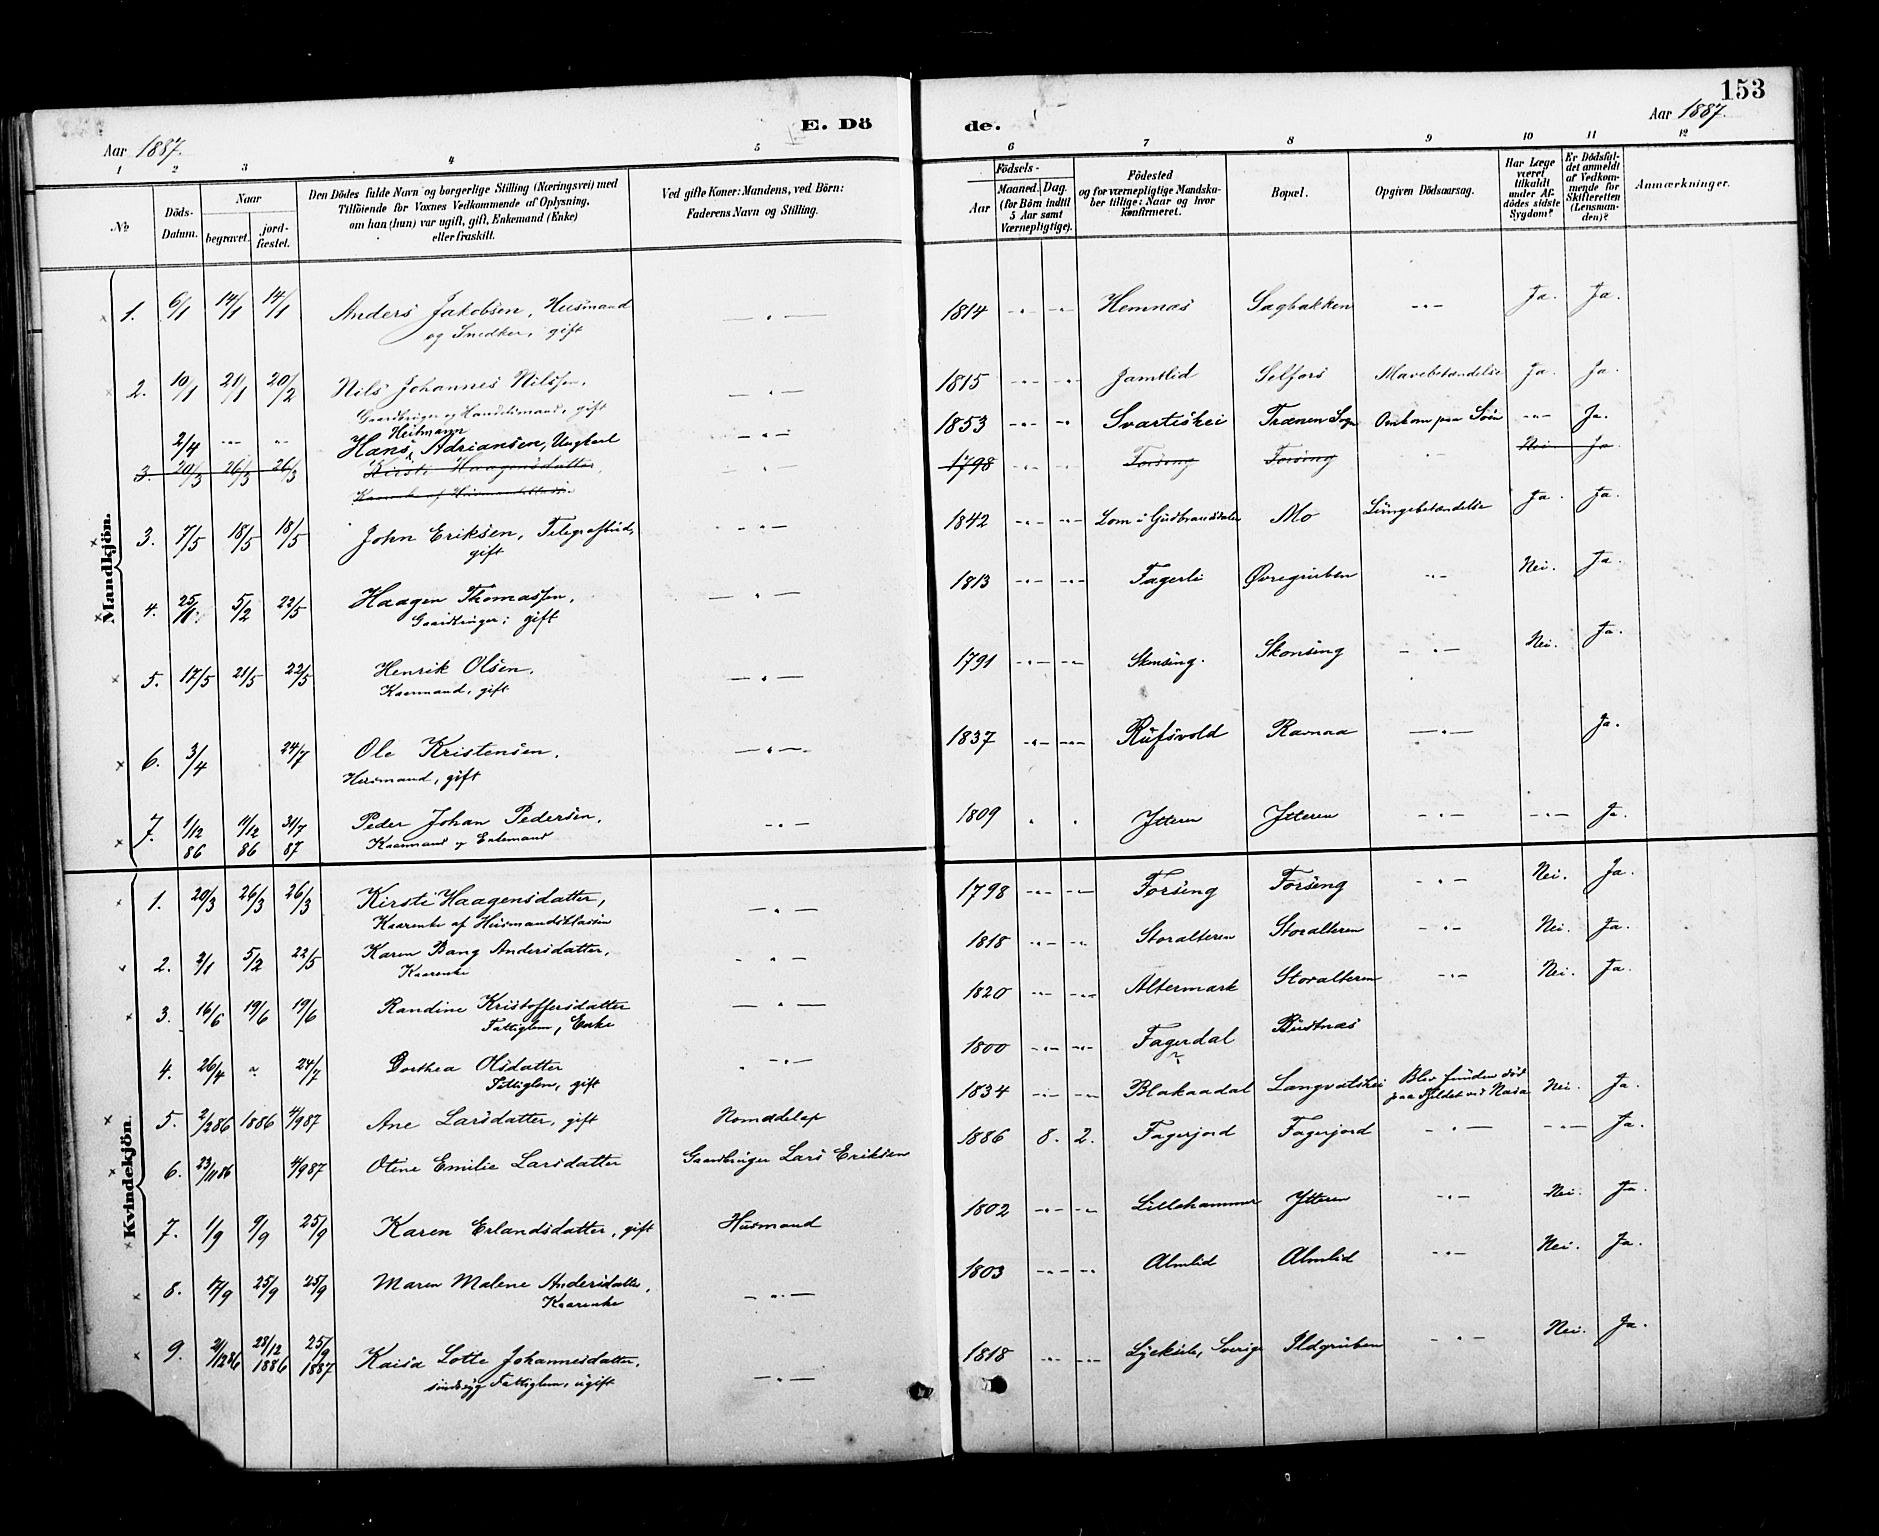 153
E. Dö
de.
Aar 1887.
Aar 1887.
1 2 3 4 5 6 7 8 9 10 11 12
No
Döds-Datum.
Naar
begravet.
jord-fæstet.
Den Dödes fulde Navn og borgerlige Stilling (Næringsvei) med
Tilföiende for Voxnes Vedkommende af Oplysning,
om han (hun) var ugift, gift, Enkemand (Enke)
eller fraskilt.
Ved gifte Koner: Mandens, ved Börn:
Faderens Navn og Stilling.
Födsels-
Aar
Maaned. Dag.
(for Börn indtil
5 Aar samt
Værnepligtige).
Födested
og for værnepligtige Mandska-
ber tillige: Naar og hvor
konfirmeret.
Bopæl.
Opgiven Dödsaarsag.
Har Læge
været
tilkaldt
under Af-
dödes sidste
Sygdom?
Er Dödsfal-
det anmeldt
af Vedkom-
mende for
Skifteretten
(Lensman-
den)?
Anmærkninger.
Mandkjön.
1. 6/1 14/1 14/1 Anders Jakobsen, Husmand -"- 1814 -"- -"- Hemnæs Sagbakken -"- Ja. Ja.
og Snedker, gift
2. 10/1 21/1 20/2 Nils Johannes Nilssen, -"- 1815 -"- -"- Jamtlid Selfors Mavebetændelse Ja. Ja.
Gaardbruger og Handelsmand, gift
Heitmann
2/4 -"- -"- Hans Adriansen, Ungkarl -"- 1853 -"- -"- Svartishei Trænen Sogn Omkom paa Söen -"- Ja.
3. 20/3 26/3 26/3 Kirsti Haagensdatter -"- 1798 -"- -"- Forsing Forsing -"- Nei Ja
Kaarenke af Husmandsklassen
3. 7/5 18/5 18/5 John Eriksen, Telegrafbud, -"- 1842 -"- -"- Lom i Gudbrandsdalen Mo Lungebetændelse Ja. Ja.
gift
4. 5/2 22/5 Haagen Thomassen, -"- 1813 -"- -"- Fagerli Øvregruben -"- Nei. Ja.
Gaardbruger; gift
5. 17/5 21/5 22/5 Henrik Olsen, -"- 1791 -"- -"- Skonsing. Skonsing -"- Nei. Ja.
Kaarmand, gift
6. 3/4 24/7 Ole Kristensen, -"- 1837 -"- -"- Rufsvold Ravnaa -"- Ja.
Husmand, gift
7. 1/12 86 11/12 86 31/7 87 Peder Johan Pedersen, -"- 1809 " " Ytteren Ytteren -"- -"- Ja.
Kaarmand og Enkemand
Kvindekjön.
1. 20/3 26/3 26/3 Kirsti Haagensdatter, -"- 1798 -"- -"- Forsing Forsing -"- Nei. Ja.
Kaarenke af Husmandsklassen
2. 2/1 5/2 22/5 Karen Bang Andersdatter, -"- 1818 -"- -"- Storalteren Storalteren -"- Nei. Ja.
Kaarenke
3. 16/6 19/6 19/6 Randine Kristoffersdatter -"- 1820 -"- -"- Altermark Storalteren -"- Nei. Ja.
Fattiglem, Enke
4. 26/4 " 24/7 Dorthea Olsdatter -"- 1800 -"- -"- Fagerdal Bustnæs
Fattiglem, gift
5. 2/2 86 1886 4/9 87 Ane Larsdatter, gift Nomadelap 1834 -"- -"- Blakaadal Langvatshei Blev funden död Nei. Ja.
paa Fjeldet ved Nasa
6. 23/11 86 4/9 87 Otine Emilie Larsdatter Gaardbruger Lars Eriksen 1886 8. 2. Fagerjord Fagerjord -"- -"- Ja.
7. 1/9 9/9 25/9 Karen Erlandsdatter, gift Husmand 1802 -"- -"- Lillehammer Ytteren -"- Nei. Ja.
8. 17/9 25/9 25/9 Maren Malene Andersdatter, -"- 1803 -"- -"- Almlid Almlid -"- Nei. Ja.
Kaarenke
9. 21/12 86 28/12 1886 25/9 1887 Kaisa Lotte Johannesdatter, -"- 1818 -"- -"- Lycksele, Sverige Ildgruben -"- Nei. Ja.
sindssyg Fattiglem, ugift